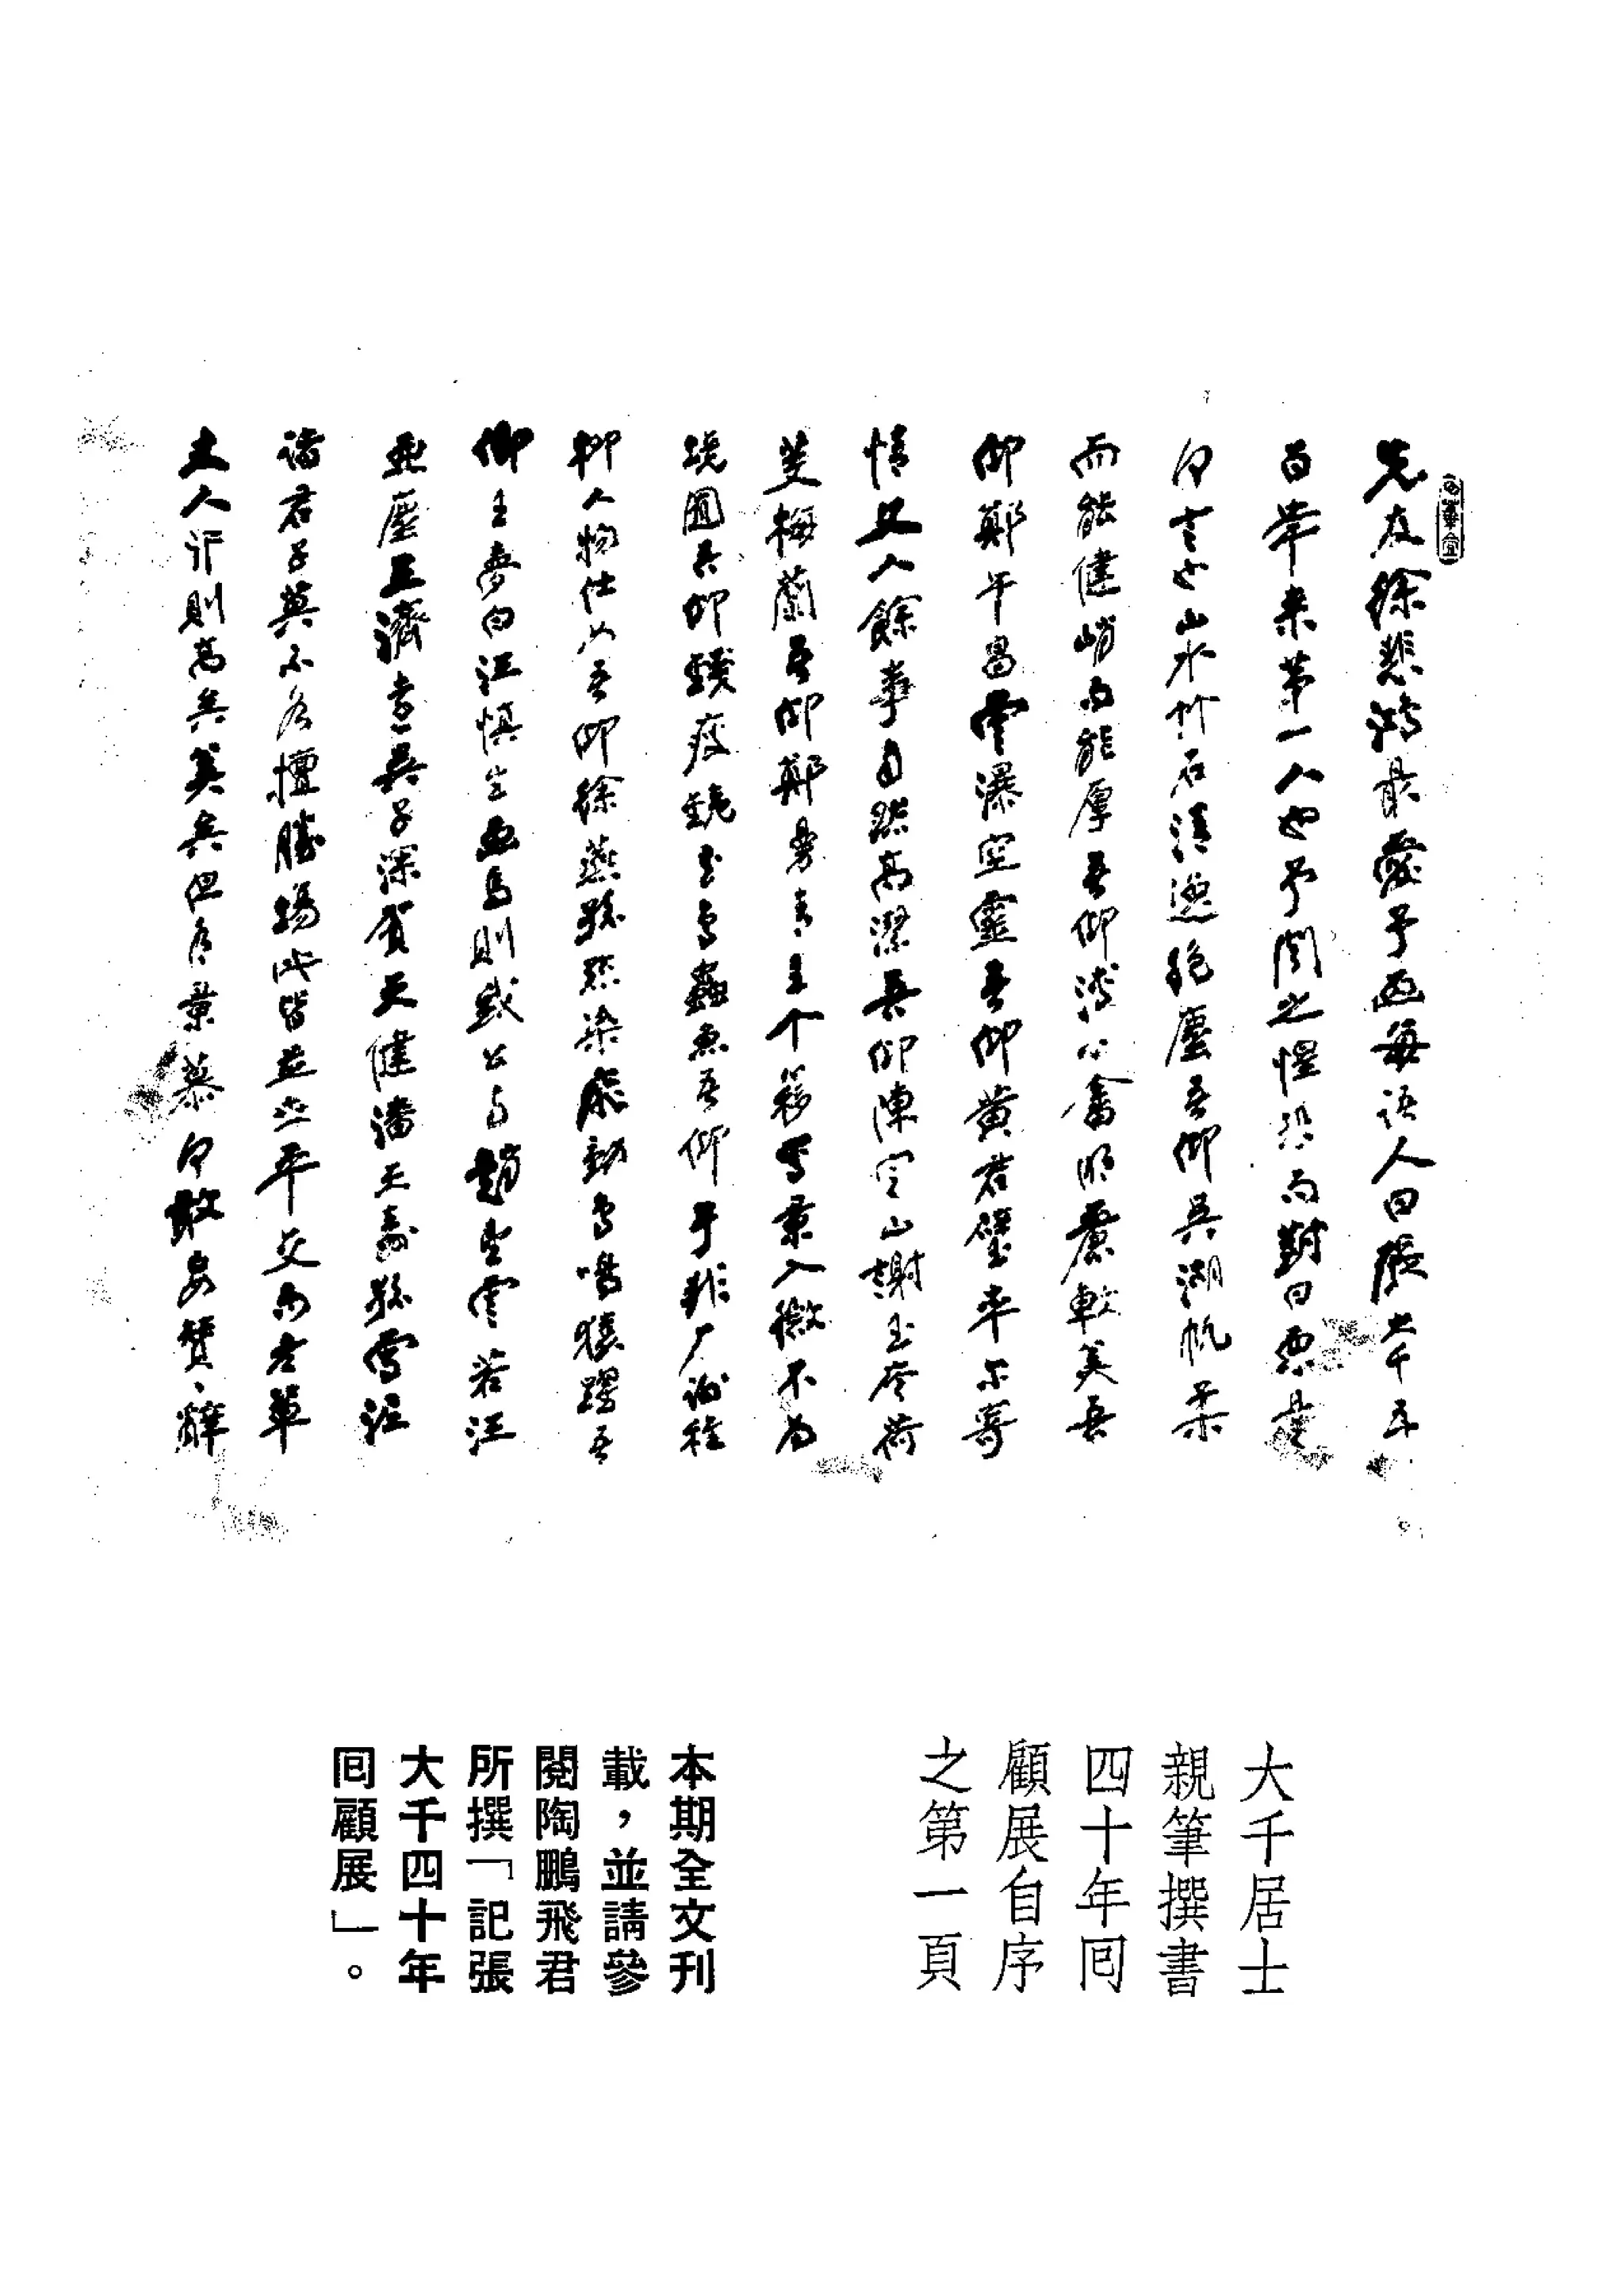 先友徐悲鴻最愛予画每語人曰張大千五
百年來第一人也予聞之惶恐而對曰惡是
何言也山水竹石清逸絕塵吾仰吳湖帆柔
而能健峭而能厚吾仰溥心畬明麗軟美吾
仰鄭午昌雲瀑空靈吾仰黃君璧率尔寄
情文人餘事自然高潔吾仰陳定山謝玉岑荷
芰梅蘭吾仰鄭曼青王个簃寫景入微不為
境囿吾仰錢瘦鐵花鳥蟲魚吾仰于非厂謝稚
柳人物仕女吾仰徐燕孫點染飛動鳥鳴猿躍吾
仰王夢白汪慎生画馬則我公与趙望雲若汪
亞塵王濟遠吳子深賀天健潘天壽孫雪泥
諸君子莫不各擅勝場此皆並世平交而老輩
丈人行則高矣美矣但有景慕何敢妄贊一辭
大千居士
親筆撰書
四十年回
顧展自序
之第一頁
本期全文刊
載，並請參
閱陶鵬飛君
所撰「記張
大千四十年
回顧展」。